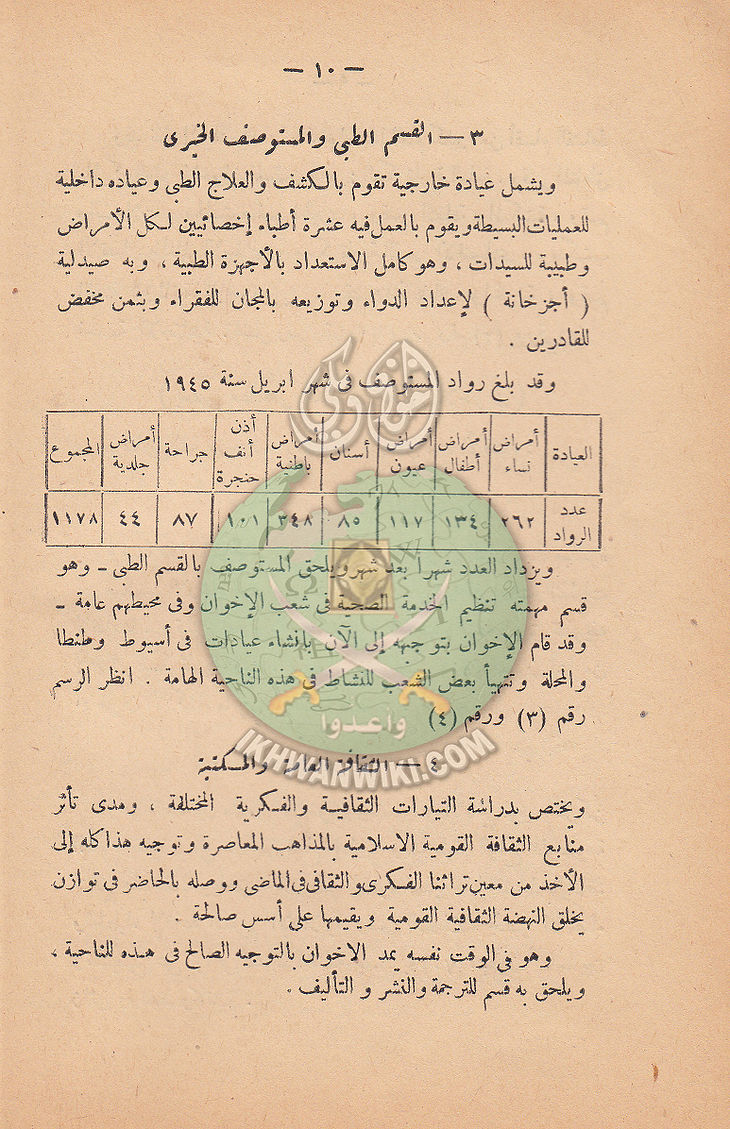 — ١٠ —
٣ — القسم الطبى والمستوصف الخيرى
ويشمل عيادة خارجية تقوم بالكشف والعلاج الطبى وعياده داخلية
للعمليات البسيطة ويقوم بالعمل فيه عشرة أطباء إخصائيين لكل الأمراض
وطبيبة للسيدات ، وهو كامل الاستعداد بالأجهزة الطبية ، وبه صيدلية
( أجزخانة ) لإعداد الدواء وتوزيعه بالمجان للفقراء وبثمن مخفض
للقادرين .
وقد بلغ رواد المستوصف فى شهر ابريل سنة ١٩٤٥
العيادة | أمراض نساء | أمراض أطفال | أمراض عيون | أسنان | أمراض باطنية | أذن أنف حنجرة | جراحة | أمراض جلدية | المجموع
عدد الرواد | ٢٦٢ | ١٣٤ | ١١٧ | ٨٥ | ٣٤٨ | ١٠١ | ٨٧ | ٤٤ | ١١٧٨
ويزداد العدد شهراً بعد شهر ويلحق المستوصف بالقسم الطبى – وهو
قسم مهمته تنظيم الخدمة الصحية فى شعب الإخوان وفى محيطهم عامة –
وقد قام الإخوان بتوجيهه إلى الآن بإنشاء عيادات فى أسيوط وطنطا
والمحلة وتتهيأ بعض الشعب للنشاط فى هذه الناحية الهامة . انظر الرسم
رقم (٣) ورقم (٤)
واعدوا
IKHWANWIKI.COM
٤ — الثقافة العامة والمكتبة
ويختص بدراسة التيارات الثقافية والفكرية المختلفة ، ومدى تأثر
منابع الثقافة القومية الاسلامية بالمذاهب المعاصرة وتوجيه هذا كله إلى
الأخذ من معين تراثنا الفكرى والثقافى فى الماضى ووصله بالحاضر فى توازن
يخلق النهضة الثقافية القومية ويقيمها على أسس صالحة .
وهو فى الوقت نفسه يمد الاخوان بالتوجيه الصالح فى هذه للناحية ،
ويلحق به قسم للترجمة والنشر و التأليف .